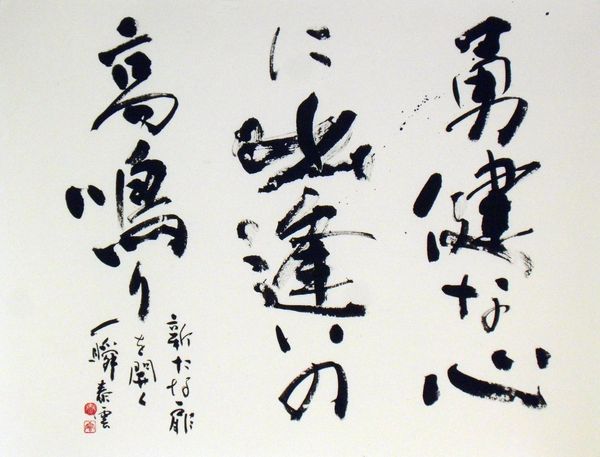 勇健な心
に出逢いの
高鳴り
新たな扉
を開く
一瞬 泰雲